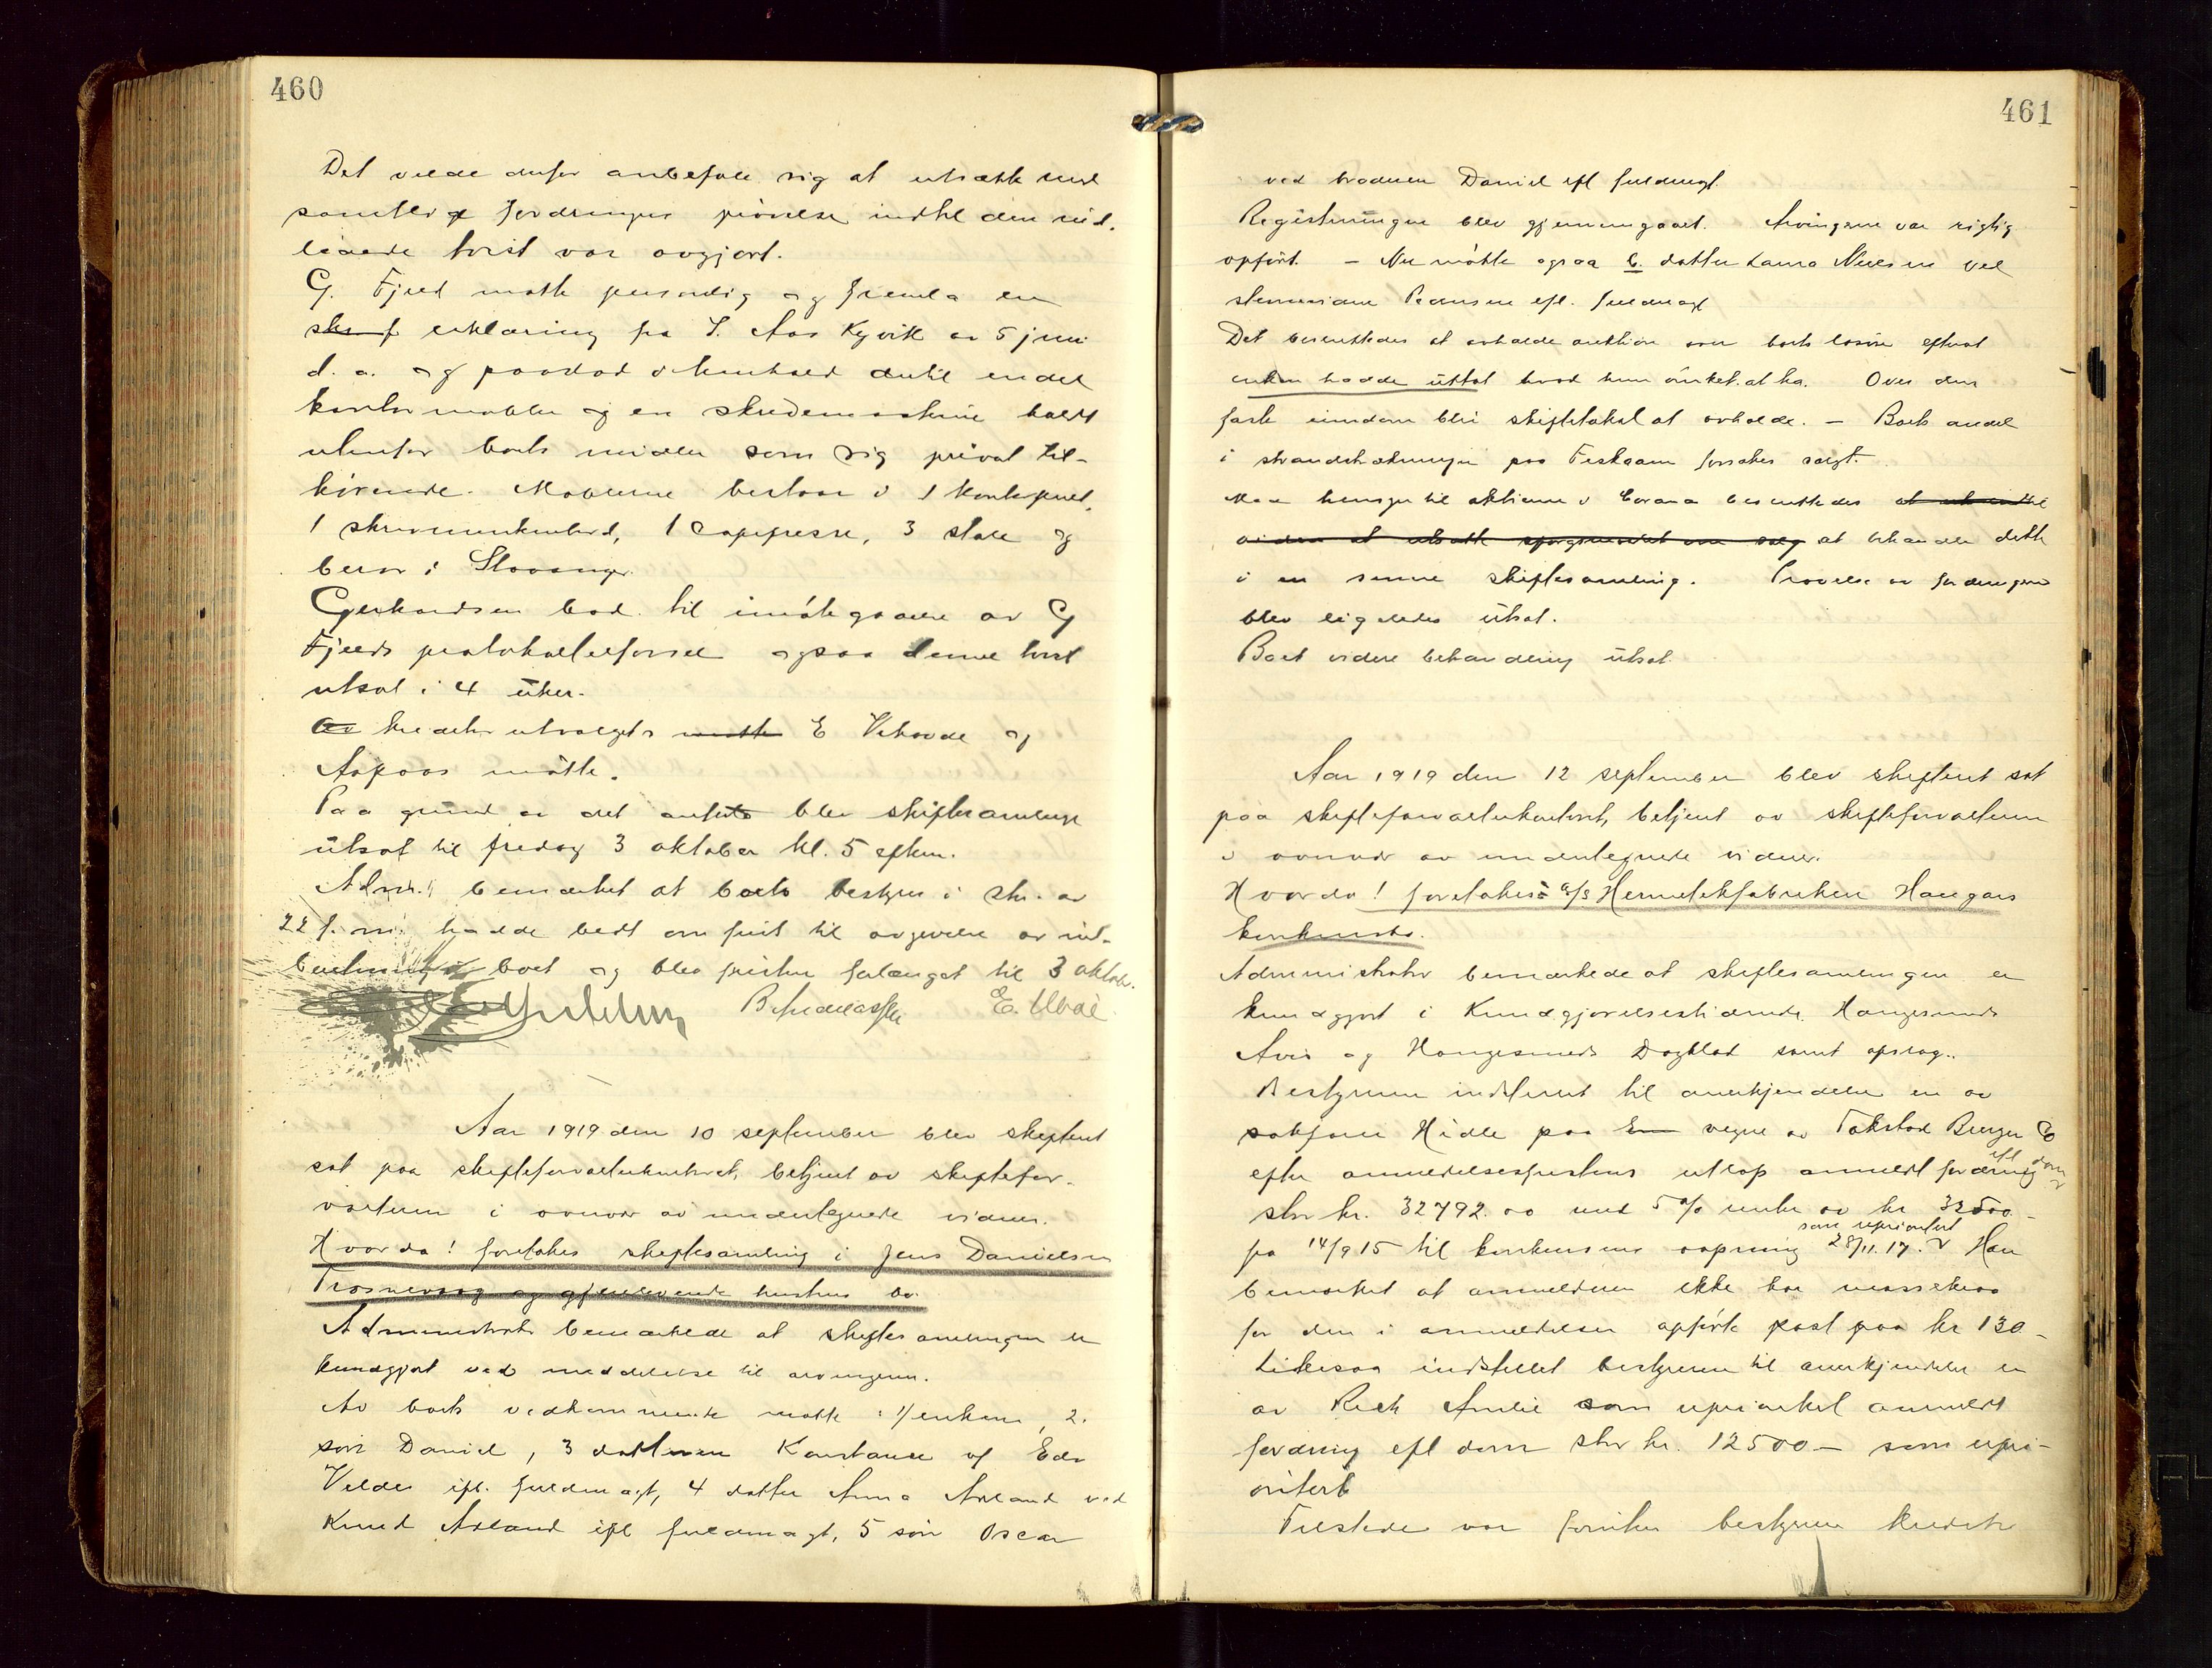 460
Det vilde derfor anbefale sig at utsætte med
samtlige fordringers prøvelse indtil den mid.
lende tvist var avgjort.
G. Fjeld møtte personlig og fremla en
erklæring fra S. Aas Kyvik av 5 juni
d. a. og paastod i henhold dertil endel
kontormøbler og en skrivemaskine holdt
utenfor boets midler som sig privat til-
hørende. Møblerne bestaar i 1 kontorpult,
1 skrivemaskinbord, 1 copipresse, 3 stole og
beror i Stavanger.
Gerhardsen bad til imøtegaaelse av G
Fjelds protokoltilførsel ogsaa denne tvist
utsat i 4 uker.
Av kreditorutvalget møtte E Vihovde og
Aspaas møtte.
Paa grund av det anførte blev skiftesamlingen
utsat til fredag 3 oktober kl. 5 efterm.
Adm. bemærket at boets bestyrer i skr. av
22 f. m. hadde bedt om frist til avgivelse av ind-
beretning i boet og blev fristen forlænget til 3 oktob.
Aar 1919 den 10 september blev skifteret
sat paa skifteforvalterkontoret, betjent av skiftefor-
valteren i overvær av undertegnede vidner.
Hvorda! foretokes skiftesamling i Jens Danielsen
og gjenlevende hustrus bo.
Administrator bemærkede at skiftesamlingen er
kundgjort ved meddelelse til arvingerne.
Av boets vedkommende møtte: 1/ enken, 2.
søn Daniel, 3 datteren Konstanse v/ Edv
Velde ifl. fuldmagt, 4 datter Anna Axland ved
Knud Axland ifl fuldmagt, 5 søn Oscar
461
ved broderen Daniel ifl fuldmagt.
Registreringen blev gjennemgaaet. Arvingerne var rigtig
opført. - Nu møtte ogsaa 6. datter Laura Nilsen ved
Pedersen ifl. fuldmagt
Det besluttedes at avholde auktion over boets løsøre efterat
enken hadde uttat hvad hun ønsket at ha. Over den
faste eiendom blir skiftetakst at avholde. - Boets andel
i strandstrækningen paa forsøkes solgt.
Med hensyn til aktierne i Corona besluttedes
at behandle dette
i en senere skiftesamling. Prøvelse av fordringene
blev ligeledes utsat.
Boet videre behandling utsat.
Aar 1919 den 12 september blev skifteret sat
paa skifteforvalterkontoret, betjent av skifteforvalteren
i overvær av undertegnede vidner.
Hvorda! foretokes: a/s Hermetikfabriken Haugars
konkursbo.
Administrator bemærkede at skiftesamlingen er
kundgjort i Kundgjørelsestidende, Haugesunds
Avis og Haugesunds Dagblad samt opslag..
Bestyreren indstillet til anerkjendelse en av
sakfører Hidle paa vegne av Tokstad Burger Co
efter anmeldelsesfristens utløp anmeldt fordring ifl dom
stor kr. 32792.00 med 5 % rente av kr 32500 -
fra 14/9 15 til konkursens aapning 28/11. 17. som uprioritert Han
bemærket at anmelderen ikke har massekrav
for den i anmeldelsen opførte post paa kr 130 -
Likesaa indstillet bestyreren til anerkjendelse en
av Rich Amlie som uprioritert anmeldt
fordring ifl dom stor kr. 12500 - som upri-
oritert
Tilstede var foruten bestyreren kreditor